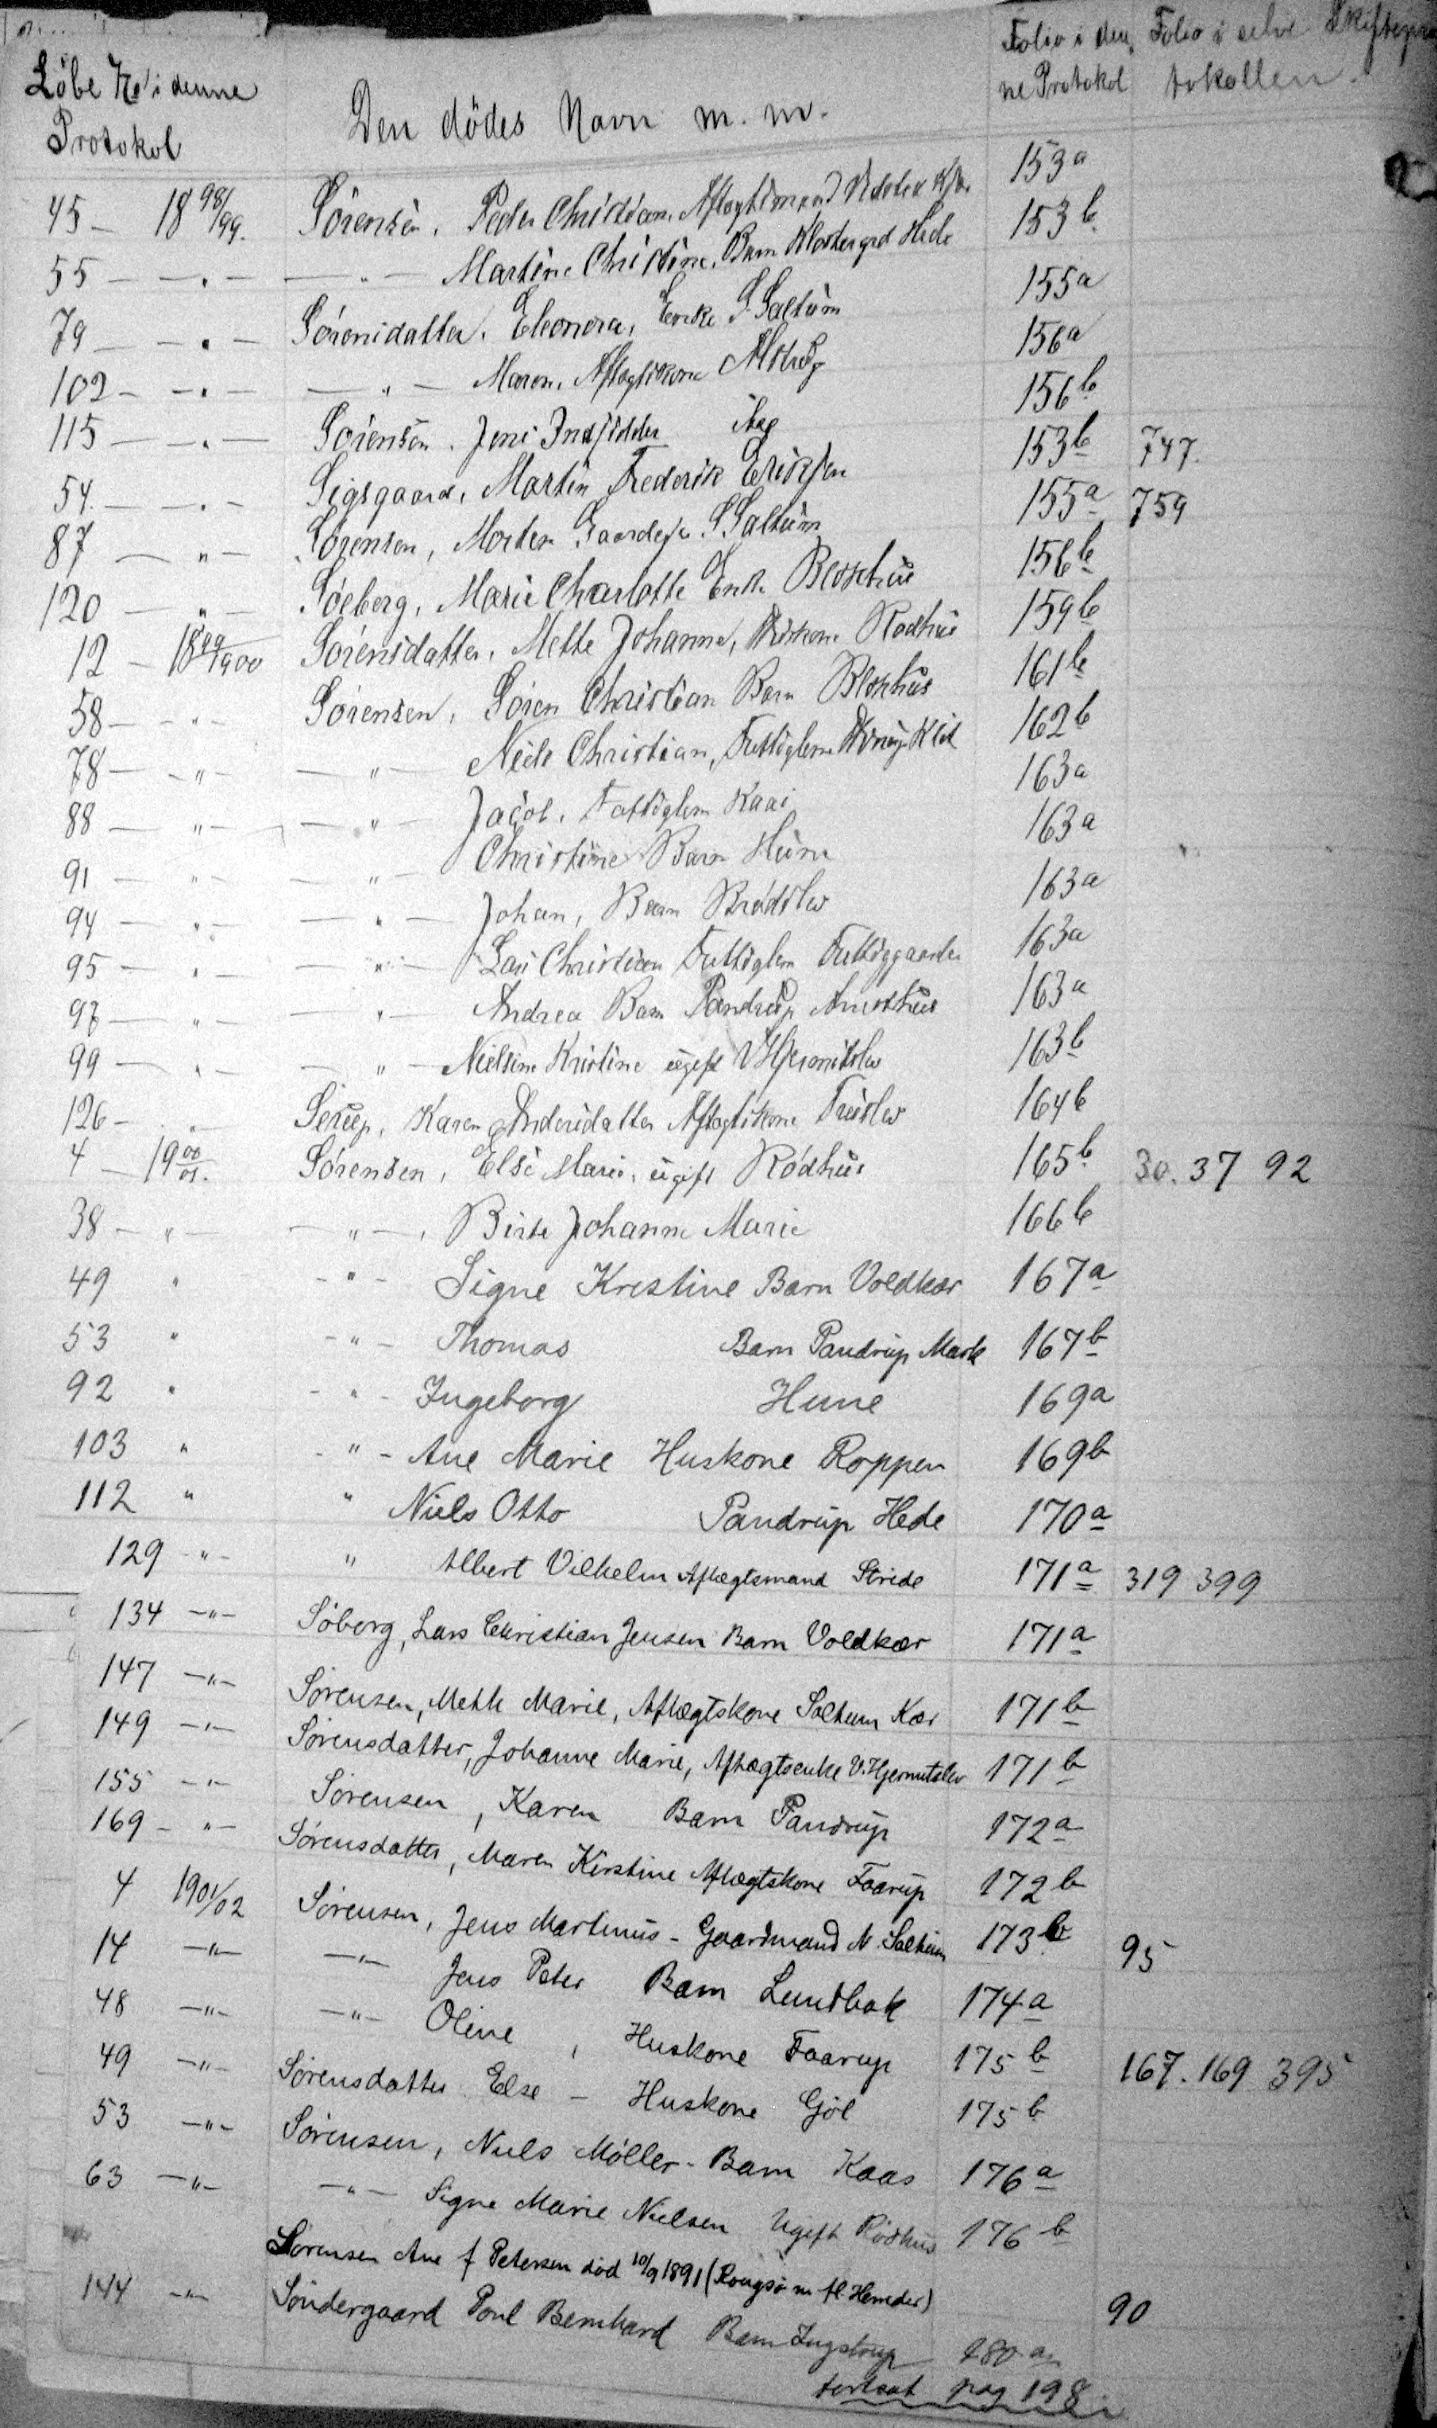 Löbe No i denne Protokol | Den dödes Navn m. m. | Folio i denne Protokol | Folio i selve Skifteprotokollen.
45 — 18 98/99. Sörensen, Peder Christian, Aftægtsmand 153 a
55 — " — — " — Martine Christine, Barn Klostergrd Hede 153 b
79 — " — Sörensdatter, Eleonora, Enke S. Saltum 155 a
102 — " — — " — Maren, Aftægtskone Alstrup 156 a
115 — " — Sörensen, Jens Indsidder Aag 156 b
54 — " — Sigsgaard, Martin Frederik Eriksen 153 b 747.
87 — " — Sörensen, Morten Gaardejer S. Saltum 155 a 759
120 — " — Söeberg, Marie Charlotte Enke Blokhus 156 b
12 — 1899/1900 Sörensdatter, Mette Johanne, Huskone Rödhus 159 b
58 — " — Sörensen, Sören Christian Barn Blokhus 161 b
78 — " — " — Niels Christian, Fattiglem Klit 162 b
88 — " — — " — Jacob, Fattiglem Kaas 163 a
91 — " — — " — Christine Barn Hune 163 a
94 — " — — " — Johan, Barn Brödslev 163 a
95 — " — — " — Lars Christian Fattiglem Fattiggaarden 163 a
97 — " — — " — Andrea Barn Pandrup 163 a
99 — " — — " — Nielsine Kristine ugift V Hjermitslev 163 b
126 — " — Serup, Karen Andersdatter Aftægtskone Trudslev 164 b
4 — 19 00/01. Sörensen, Else Marie, ugift Rödhus 165 b 30. 37 92
38 — " — — " —, Birte Johanne Marie 166 b
49 " — " — Signe Kristine Barn Voldkær 167 a
53 " — " — Thomas Barn Pandrup Mark 167 b
92 " — " — Ingeborg Hune 169 a
103 " — " — Ane Marie Huskone Roppen 169 b
112 " " Niels Otto Pandrup Hede 170 a
129 — " — " Albert Vilhelm Aftægtsmand Stride 171 a 319 399
134 — " — Söberg, Lars Christian Jensen Barn Voldkær 171 a
147 — " — Sörensen, Mette Marie, Aftægtskone Saltum Kær 171 b
149 — " — Sörensdatter, Johanne Marie, Aftægtsenke V. Hjermitslev 171 b
155 — " — Sörensen, Karen Barn Pandrup 172 a
169 — " — Sörensdatter, Maren Kirstine Aftægtskone Faarup 172 b
4 1901/02 Sörensen, Jens Martinus - Gaardmand N. Saltum 173 b 95
14 — " — — " — Jens Peter Barn Lundbak 174 a
48 — " — — " — Oline, Huskone Faarup 175 b 167. 169 395
49 — " — Sörensdatter Else — Huskone Gjöl 175 b
53 — " — Sörensen, Niels Möller - Barn Kaas 176 a
63 — " — — " — Signe Marie Nielsen Ugift Rödhus 176 b
Sörensen Ane f Petersen död 10/9 1891 (Rougsö m fl. Herreder) 90
144 — " — Söndergaard Poul Bernhard Barn Ingstrup 180 a
fortsat pag 198